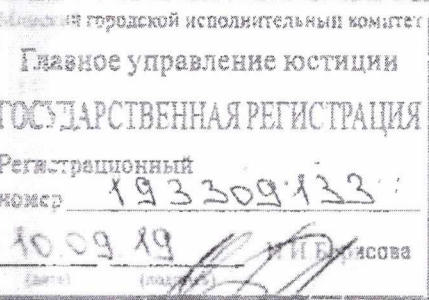 городской исполнительный комитет
Главное управление юстиции
ГОСУДАРСТВЕННАЯ РЕГИСТРАЦИЯ
Регистрационный
номер 193309133
10.09.19
(дата) (подпись)